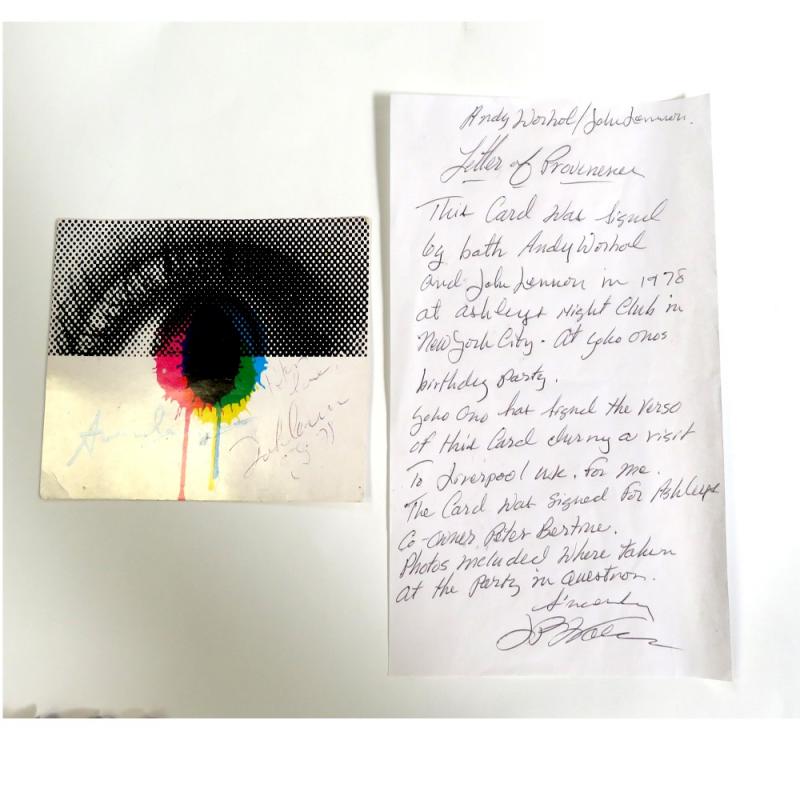 Andy Worhol/John Lennon.
Letter of Provinence
This Card Was Signed
by both Andy Worhol
and John Lennon in 1978
at ashleys Night Club in
New York City. At yoko onos
birthday party.
yoko Ono has Signed the Verso
of this Card during a visit
To Liverpool uk. for me.
The Card Was Signed For Ashleys
Co-owner Peter Bertine.
Photos included Where taken
at the Party in Question.
Sincerely
John Lennon